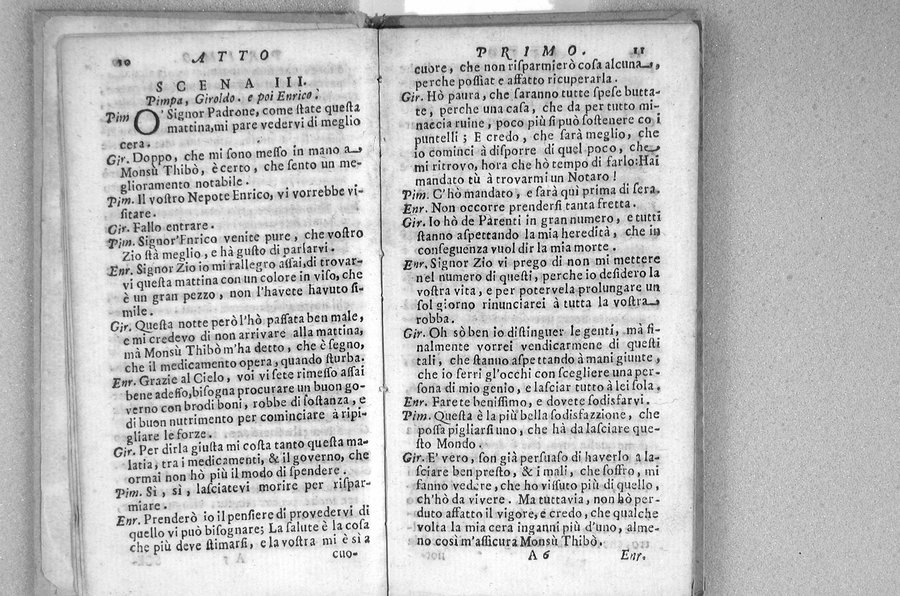 10 ATTO
SCENA III.
Pimpa, Giroldo. e poi Enrico.
Pim O' Signor Padrone, come state questa
mattina, mi pare vedervi di meglio
cera.
Gir. Doppo, che mi sono messo in mano a
Monsù Thibò, è certo, che sento un me-
glioramento notabile.
Pim. Il vostro Nepote Enrico, vi vorrebbe vi-
sitare.
Gir. Fallo entrare.
Pim. Signor'Enrico venite pure, che vostro
Zio stà meglio, e hà gusto di parlarvi.
Enr. Signor Zio io mi rallegro assai, di trovar-
vi questa mattina con un colore in viso, che
è un gran pezzo, non l'havete havuto si-
mile.
Gir. Questa notte però l'hò passata ben male,
e mi credevo di non arrivare alla mattina,
mà Monsù Thibò m'ha detto, che è segno,
che il medicamento opera, quando sturba.
Enr. Grazie al Cielo, voi vi sete rimesso assai
bene adesso, bisogna procurare un buon go-
verno con brodi boni, robbe di sostanza, e
di buon nutrimento per cominciare à ripi-
gliare le forze.
Gir. Per dirla giusta mi costa tanto questa ma-
latia, tra i medicamenti, & il governo, che
ormai non hò più il modo di spendere.
Pim. Sì, sì, lasciatevi morire per rispar-
miare.
Enr. Prenderò io il pensiere di provedervi di
quello vi può bisognare; La salute è la cosa
che più deve stimarsi, e la vostra mi è sì a
cuo-
PRIMO. 11
cuore, che non risparmierò cosa alcuna,
perche possiat e affatto ricuperarla.
Gir. Hò paura, che saranno tutte spese butta-
te, perche una casa, che da per tutto mi-
naccia ruine, poco più si può sostenere co i
puntelli; E credo, che sarà meglio, che
io cominci à disporre di quel poco, che
mi ritrovo, hora che hò tempo di farlo: Hai
mandato tù à trovarmi un Notaro!
Pim. C'hò mandato, e sarà quì prima di sera.
Enr. Non occorre prendersi tanta fretta.
Gir. Io hò de Parenti in gran numero, e tutti
stanno aspettando la mia heredità, che in
conseguenza vuol dir la mia morte.
Enr. Signor Zio vi prego di non mi mettere
nel numero di questi, perche io desidero la
vostra vita, e per potervela prolungare un
sol giorno rinunciarei à tutta la vostra
robba.
Gir. Oh sò ben io distinguer le genti, mà fi-
nalmente vorrei vendicarmene di questi
tali, che stanno aspettando à mani giunte,
che io serri gl'occhi con scegliere una per-
sona di mio genio, e lasciar tutto à lei sola.
Enr. Farete benissimo, e dovete sodisfarvi.
Pim. Questa è la più bella sodisfazzione, che
possa pigliarsi uno, che hà da lasciare que-
sto Mondo.
Gir. E' vero, son già persuaso di haverlo a la-
sciare ben presto, & i mali, che soffro, mi
fanno vedere, che hò vissuto più di quello,
ch'hò da vivere. Ma tuttavia, non hò per-
duto affatto il vigore, e credo, che qualche
volta la mia cera inganni più d'uno, alme-
no così m'assicura Monsù Thibò.
A 6 Enr.